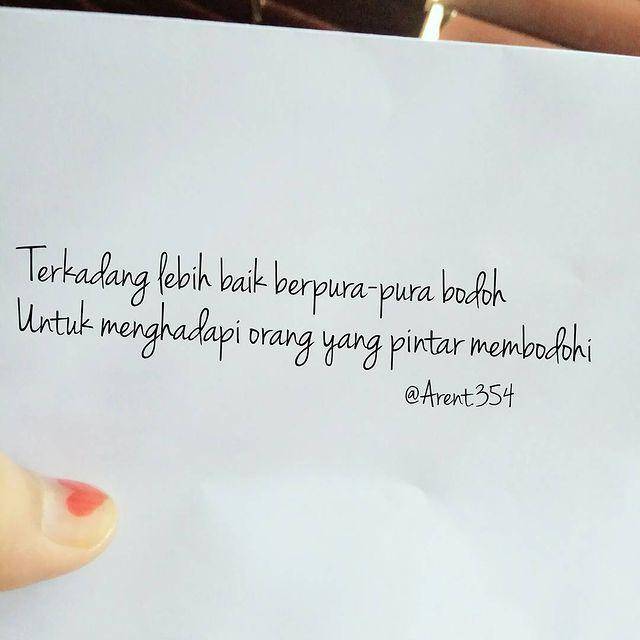 Terkadang lebih baik berpura-pura bodoh
Untuk menghadapi orang yang pintar membodohi
@Arent354